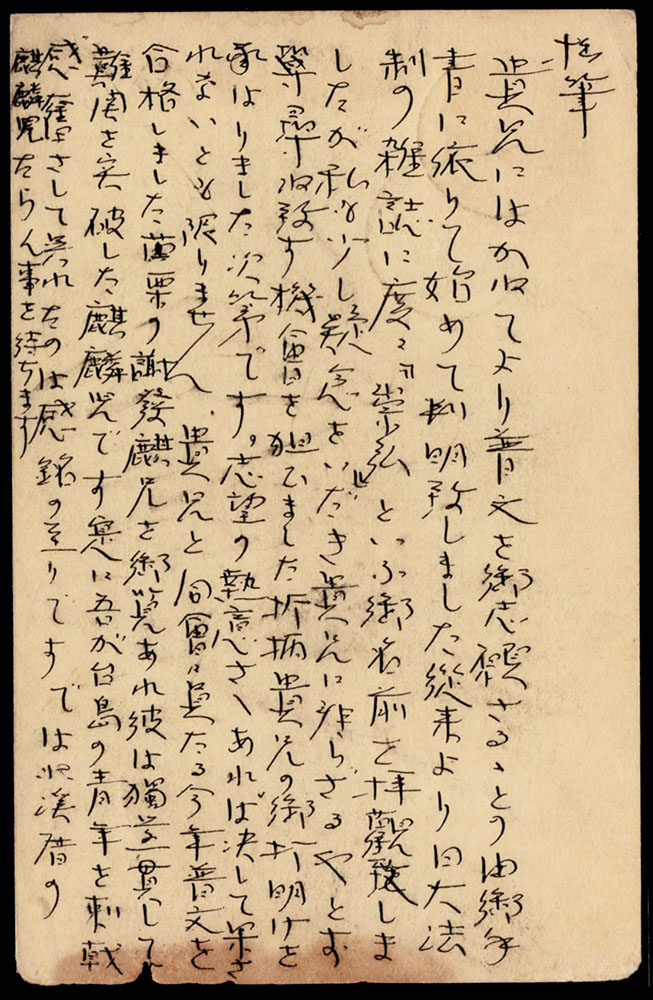 貴兄にはかねてより普文を御志望さるゝとの由御手
書に依りて始めて判明致しました從来より日大法
制の雑誌に度々『崇弘』といふ御名前を拝觀致しま
したが私も少し疑念をいだき貴兄に非らざるやとお
尋ね致す機會を狙ひました折柄貴兄の御打明けを
承はりました次第です。志望の熱意さへあれば決して果さ
れないとも限りません、貴兄と同會員たる今年普文を
合格しました苗栗の謝發麒兄を御覧あれ彼は獨学一貫して
難関を突破した麒麟児です実に吾が台島の青年を刺戟
感奮さして呉れたのは感銘の至りです では
麒麟児たらん事を待ちます